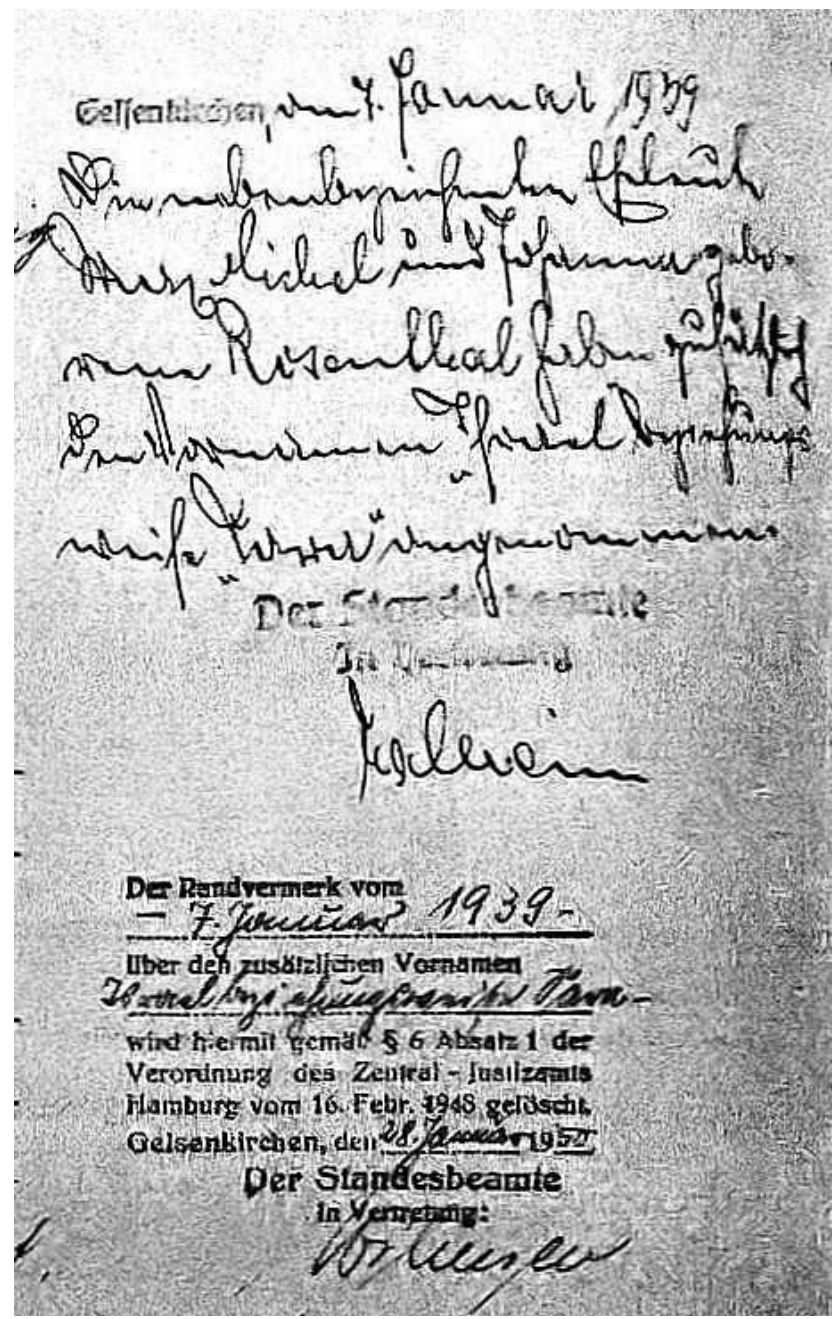 Gelsenkirchen, am 7. Januar 1939
Die nebenbezeichneten Eheleute
Nickel und Johanna gebo-
rene Rosenthal haben zusätzlich
den Vornamen „Israel" beziehungs-
weise „Sara" angenommen.
Der Standesbeamte
In Vertretung
Der Randvermerk vom
— 7. Januar 1939 -
über den zusätzlichen Vornamen
Israel beziehungsweise Sara -
wird hiermit gemäß § 6 Absatz 1 der
Verordnung des Zentral - Justizamts
Hamburg vom 16. Febr. 1948 gelöscht.
Gelsenkirchen, den 28. Januar 1950
Der Standesbeamte
In Vertretung: